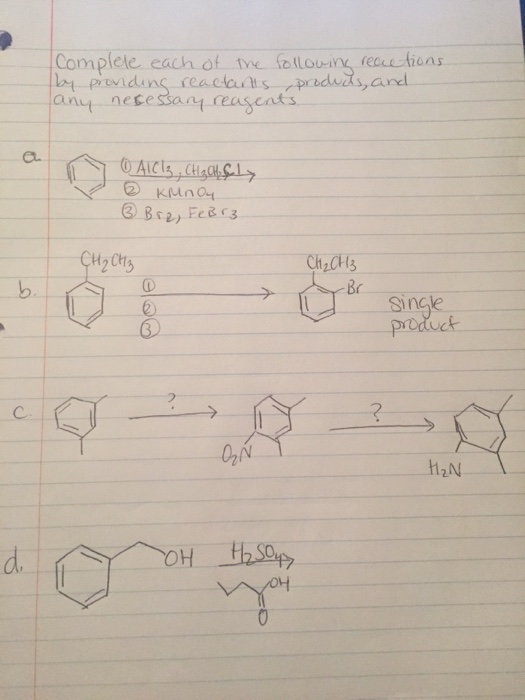 Complete each of the following reactions
by providing reactants, products, and
any necessary reagents.
a.
① AlCl3, CH3CH2Cl
② KMnO4
③ Br2, FeBr3
b.
CH2CH3
①
②
③
CH2CH3
Br
single
product
c.
?
O2N
?
H2N
d.
OH
H2SO4
OH
O